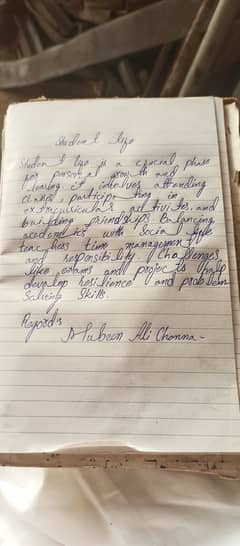 Student life
Student life is a crucial phase
for personal growth and
learing it involves attending
classes, participating in
extracurricular activites, and
building friendships. Balancing
academics with social life
teachers time management
and responsibility. Challenges
like exams and projects help
develop resilience and problem
Solving Skills.
Regards
Mubeen Ali Channa-